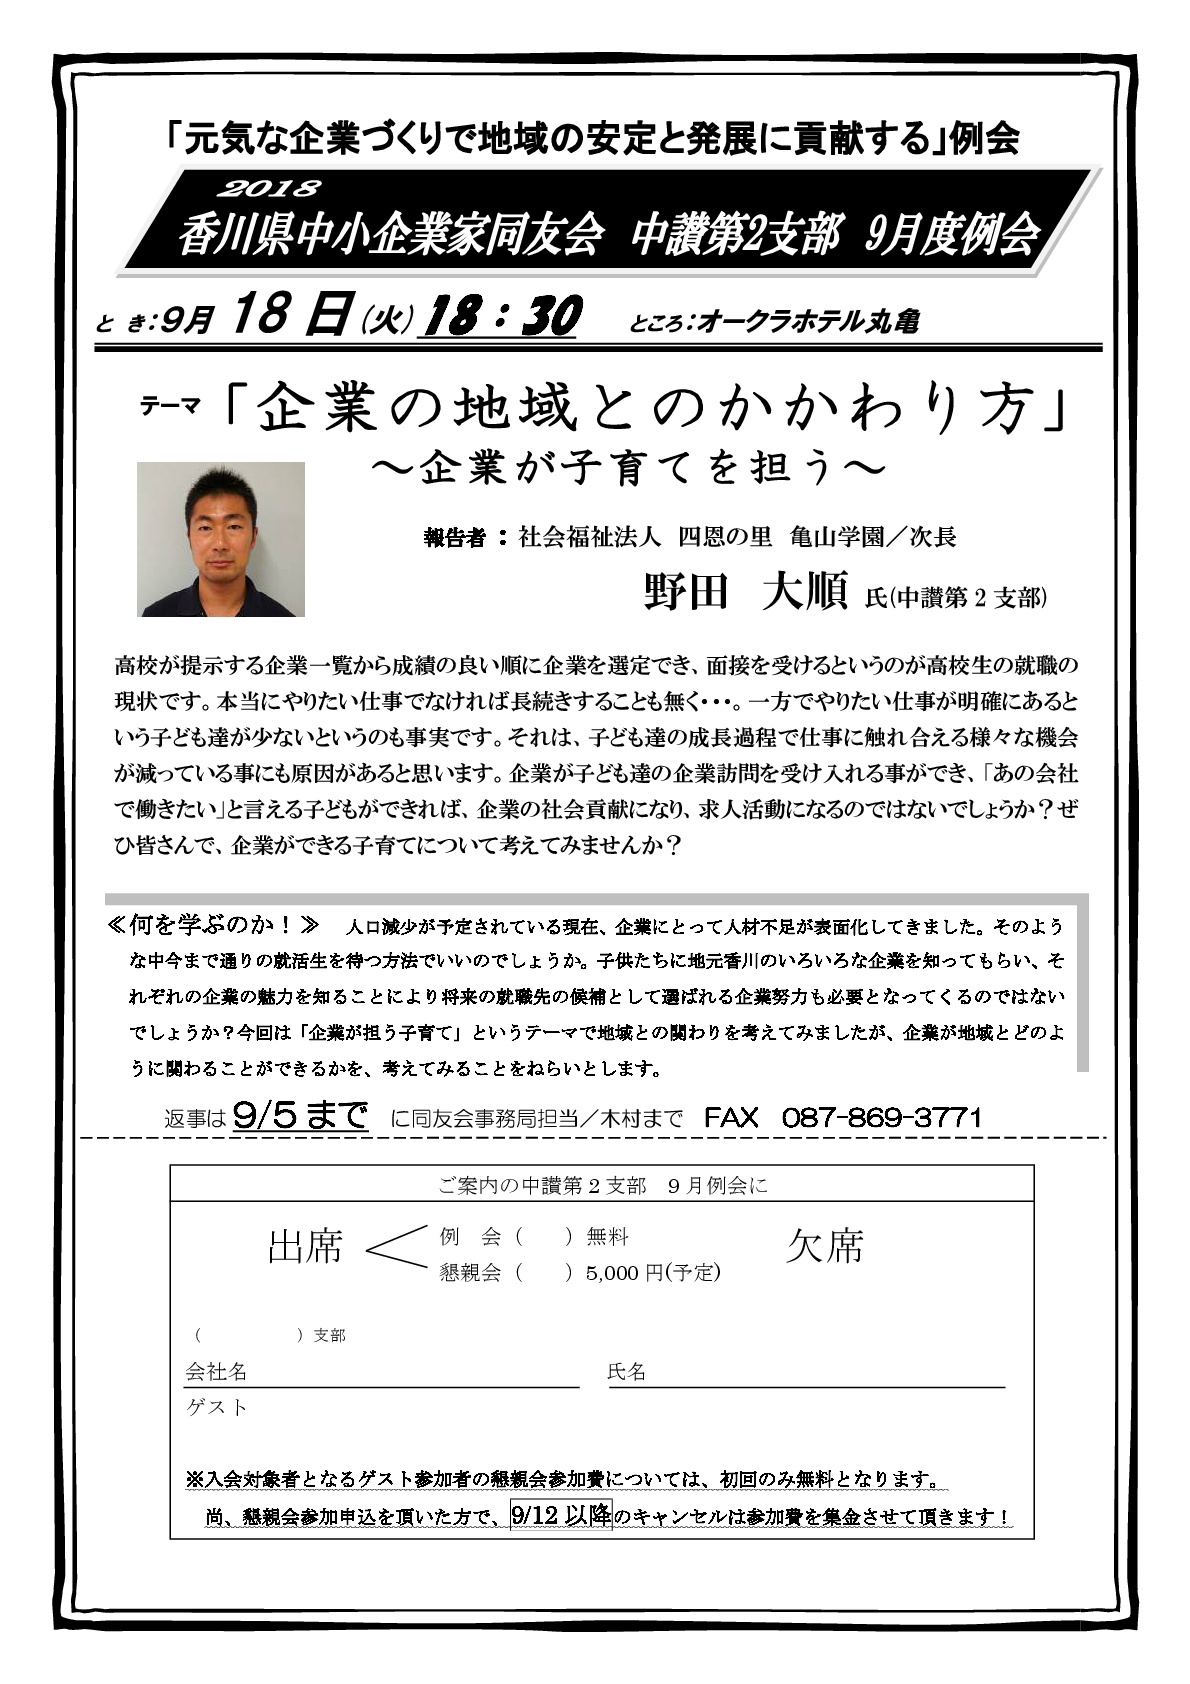 「元気な企業づくりで地域の安定と発展に貢献する」例会
2018
香川県中小企業家同友会　中讃第2支部　9月度例会
と　き：9月 18 日（火）18：30　ところ：オークラホテル丸亀
テーマ「企業の地域とのかかわり方」
～企業が子育てを担う～
報告者：社会福祉法人　四恩の里　亀山学園／次長
野田　大順 氏(中讃第２支部)
高校が提示する企業一覧から成績の良い順に企業を選定でき、面接を受けるというのが高校生の就職の
現状です。本当にやりたい仕事でなければ長続きすることも無く・・・。一方でやりたい仕事が明確にあると
いう子ども達が少ないというのも事実です。それは、子ども達の成長過程で仕事に触れ合える様々な機会
が減っている事にも原因があると思います。企業が子ども達の企業訪問を受け入れる事ができ、「あの会社
で働きたい」と言える子どもができれば、企業の社会貢献になり、求人活動になるのではないでしょうか？ぜ
ひ皆さんで、企業ができる子育てについて考えてみませんか？
≪何を学ぶのか！≫　人口減少が予定されている現在、企業にとって人材不足が表面化してきました。そのよう
な中今まで通りの就活生を待つ方法でいいのでしょうか。子供たちに地元香川のいろいろな企業を知ってもらい、そ
れぞれの企業の魅力を知ることにより将来の就職先の候補として選ばれる企業努力も必要となってくるのではない
でしょうか？今回は「企業が担う子育て」というテーマで地域との関わりを考えてみましたが、企業が地域とどのよ
うに関わることができるかを、考えてみることをねらいとします。
返事は 9/5 まで　に同友会事務局担当／木村まで　FAX　087-869-3771
ご案内の中讃第２支部　９月例会に
出席　例　会（　　）無料　欠席
懇親会（　　）5,000 円(予定)
（　　　　　　）支部
会社名　氏名
ゲスト
※入会対象者となるゲスト参加者の懇親会参加費については、初回のみ無料となります。
尚、懇親会参加申込を頂いた方で、9/12 以降のキャンセルは参加費を集金させて頂きます！